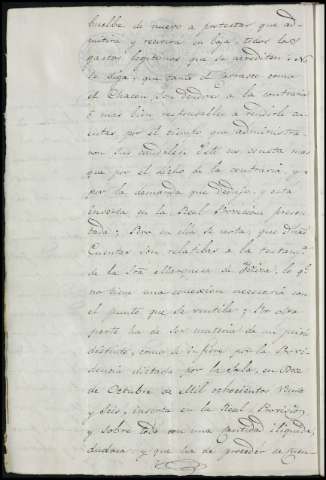 buelbe de nuevo a protestar que ad-
mitirá y recivira en baja, todos los
gastos legitimos que se acrediten: No
se diga, que tanto el Arrasco como
el Chacon, son deudores a la contraria
o mas bien responsables a rendirle cu-
entas, por el tiempo que administra-
ron sus caudales. Esto no consta mas
que por el dicho de la contraria, y
por la demanda que dedujo, y esta
inserta en la Real Provision presen-
tada; Pero en ella se nota, que dhas
Cuentas son relatibas a la testam.ª
de la Sra Marquesa de            , lo q.e
no tiene una conexion necesaria con
el punto que se ventila, y Por otra
parte ha de ser material de un juicio
distinto, como se infiere por la Provi-
dencia dictada por la Sala, en Doce
de Octubre de Mil ochocientos Veinte
y Seis, inserta en la Real Provision,
y sobre todo son una cantidad iliquida,
dudosa, y que ha de proceder de cuen-